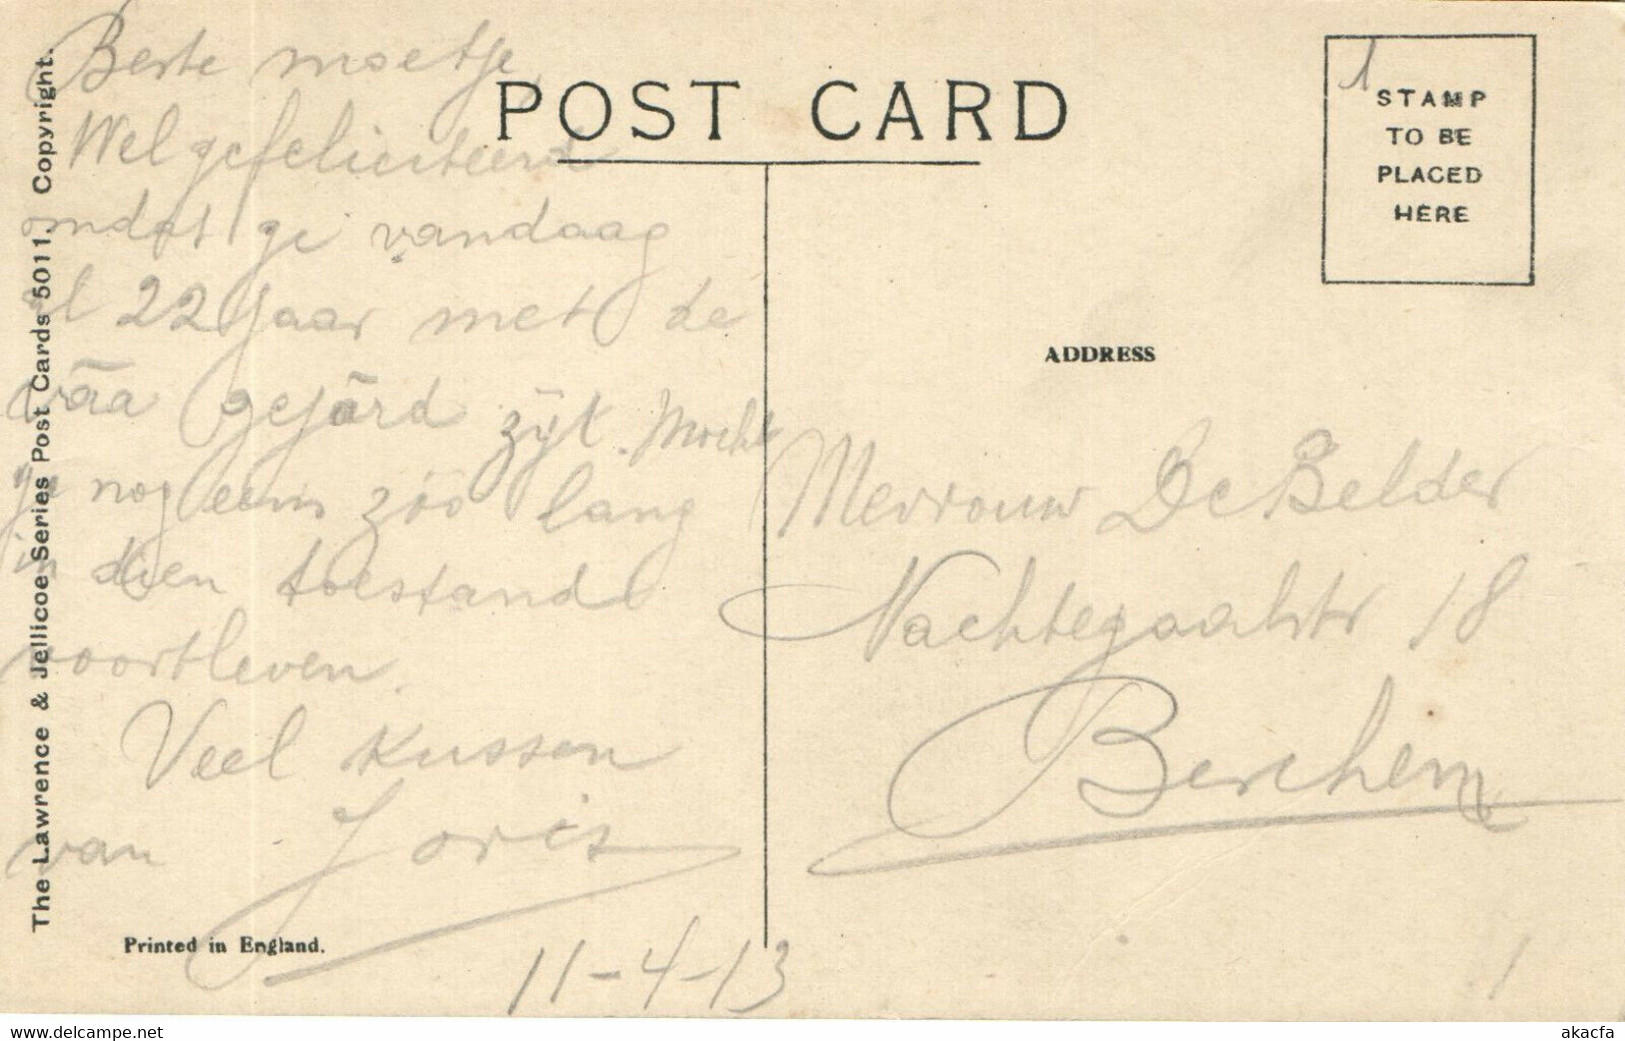 Beste moetje,
Wel gefeliciteerd
omdat ge vandaag
al 22 jaar met de
vāa gejārd zijt. Mocht
ge nog eens zóó lang
in dien toestand
voortleven.
Veel kussen
van Joris
11-4-13
The Lawrence & Jellicoe Series Post Cards 5011. Copyright.
Printed in England.
POST CARD
1
STAMP
TO BE
PLACED
HERE
ADDRESS
Mevrouw De Belder
Nachtegaalstr 18
Berchem
www.delcampe.net
akacfa